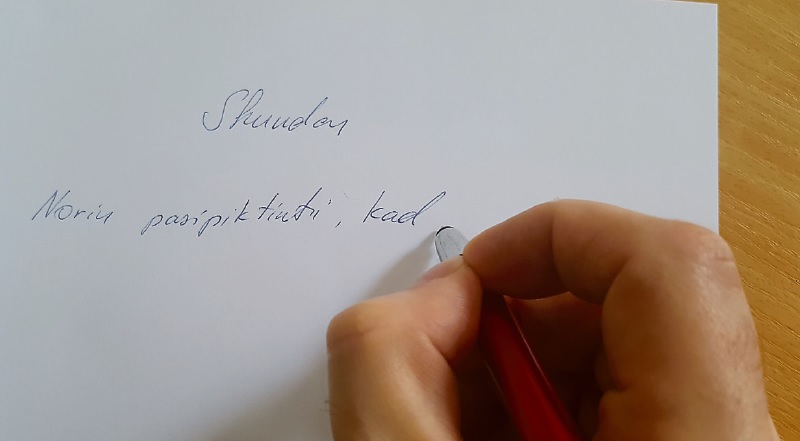 Skundas
Noriu pasipiktinti, kad